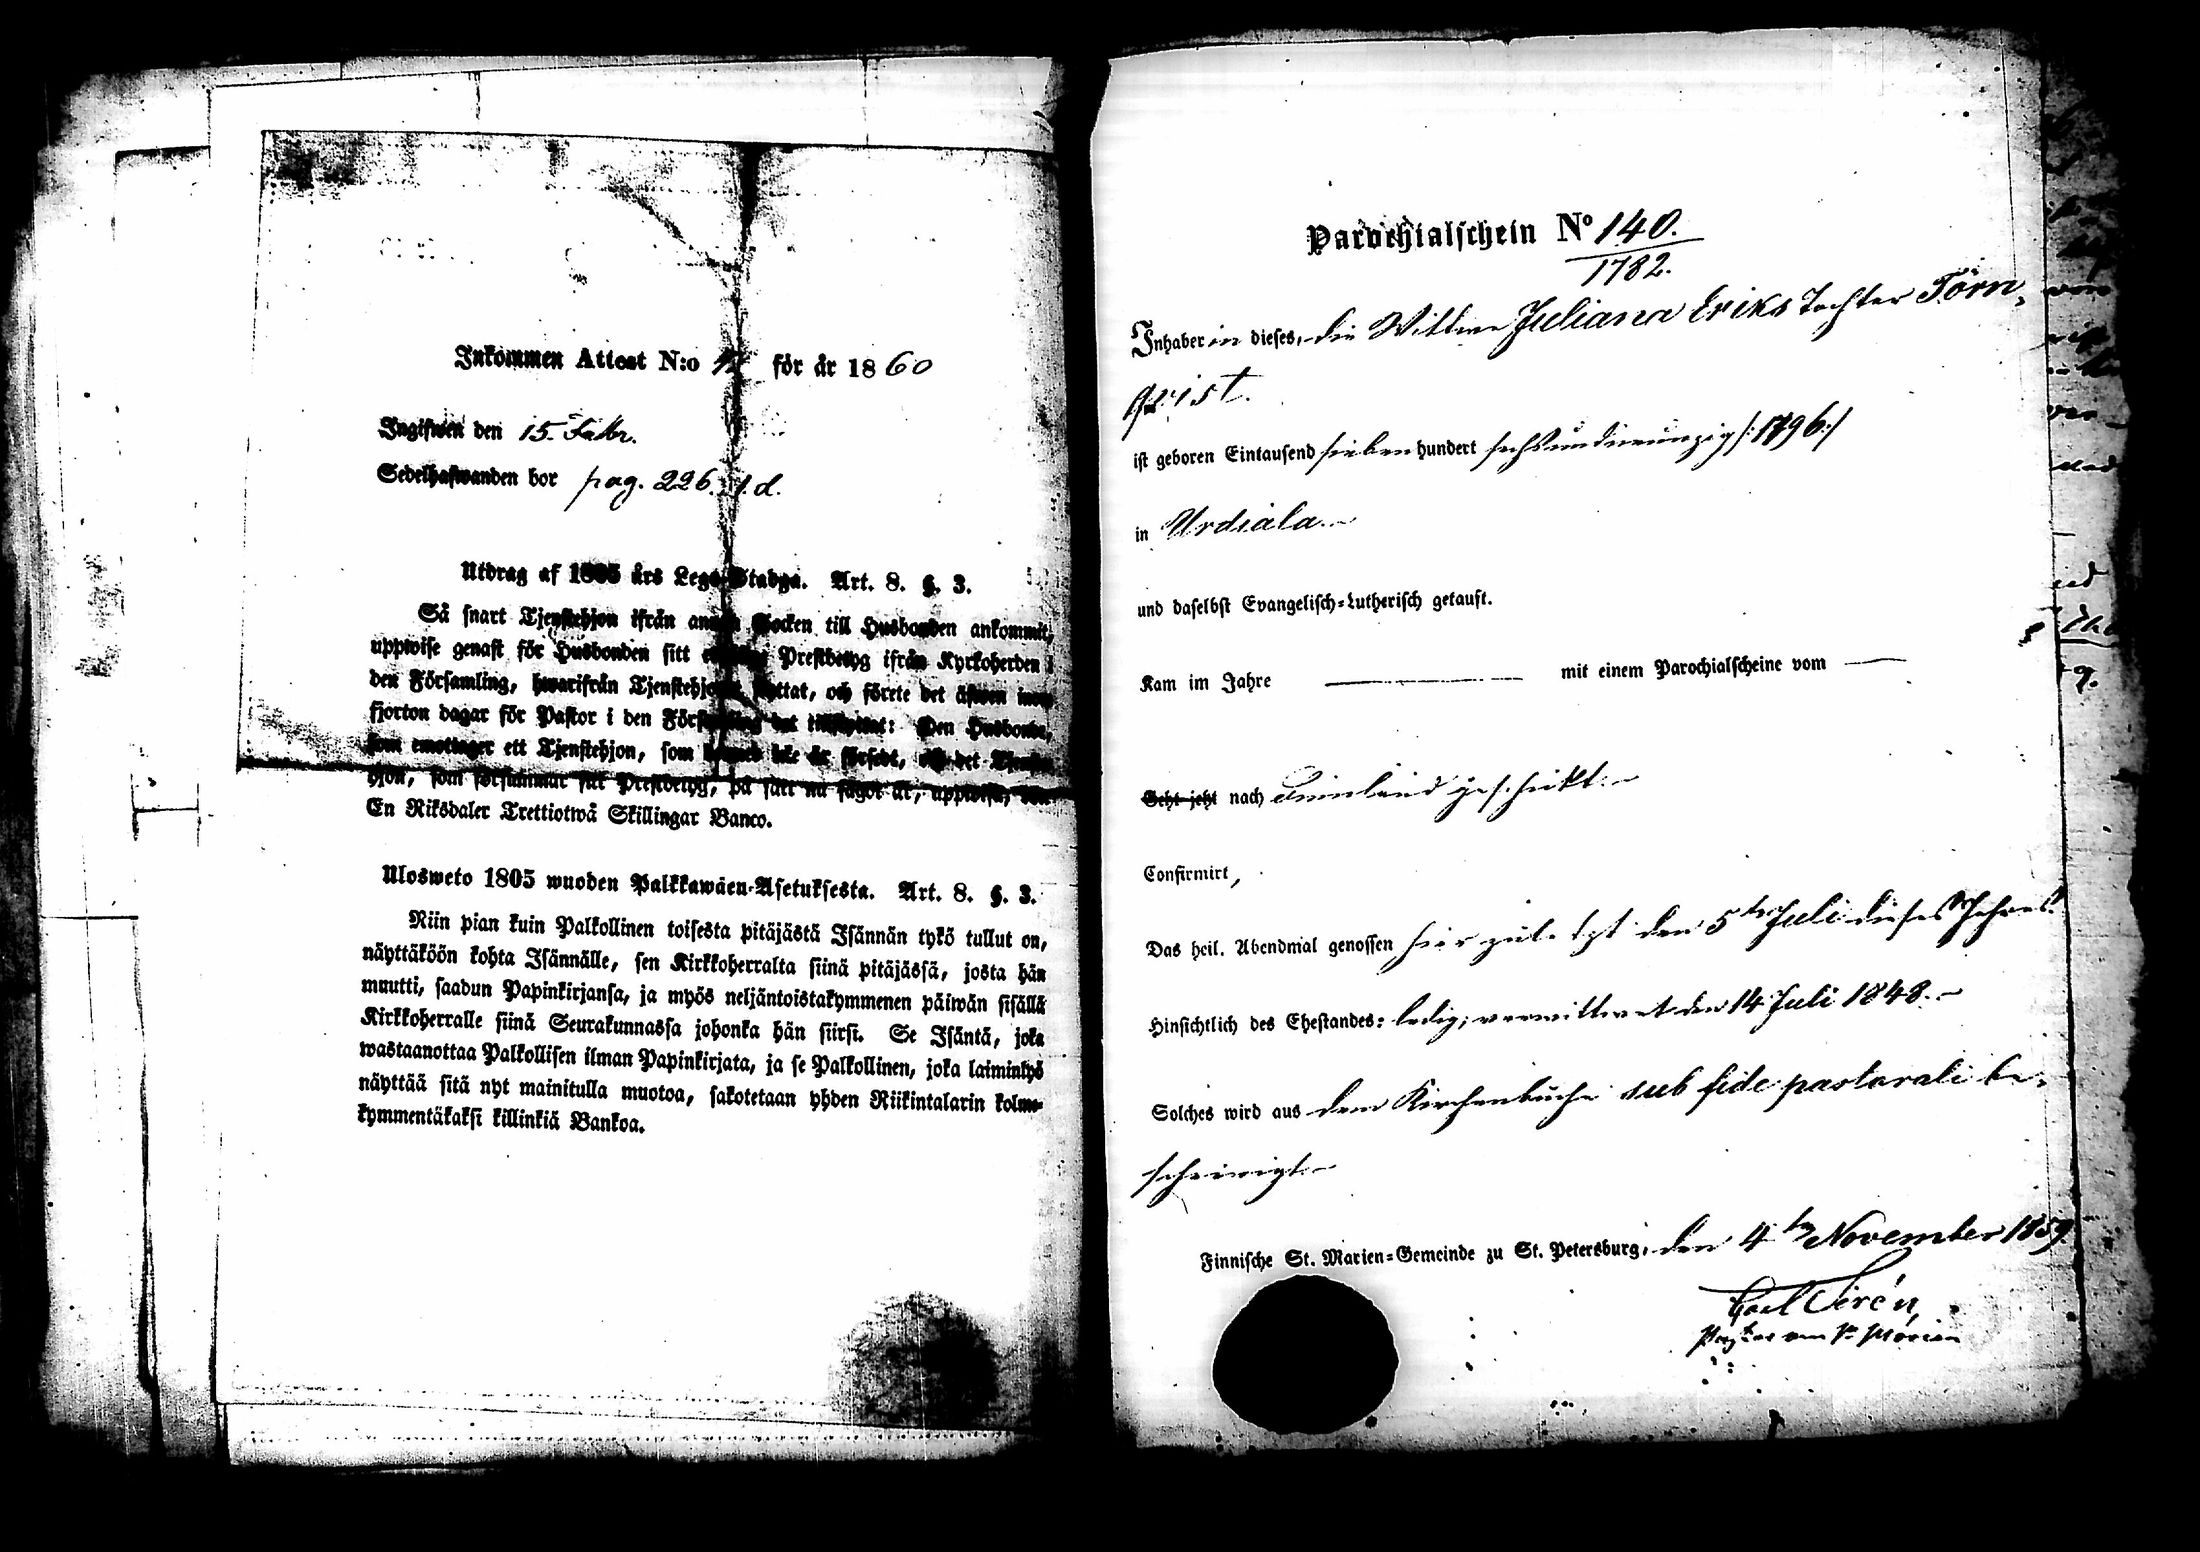 Inkommen Attest N:o för år 1860
Ingifwen den 15. Febr.
Sedelhafwanden bor pag. 226. f. d.
Utdrag af 1805 års Lego-Stadga. Art. 8. §. 3.
Så snart Tjenstehjon ifrån annan Socken till Husbonden ankommit,
uppwise genast för Husbonden sitt Prestbetyg ifrån Kyrkoherden i
den Församling, hwarifrån Tjenstehjonet flyttat, och förete det äfwen inom
fjorton dagar för Pastor i den Församling det tillflyttat: Den Husbonde,
som emottager ett Tjenstehjon, som dermed icke är försedt, och det Tjenste-
hjon, som försummar sitt Prestbetyg, på sätt nu sagdt är, uppwisa,
En Riksdaler Trettiotwå Skillingar Banco.
Ulosweto 1805 wuoden Palkkawäen-Asetuksesta. Art. 8. §. 3.
Niin pian kuin Palkollinen toisesta pitäjästä Isännän tykö tullut on,
näyttäköön kohta Isännälle, sen Kirkkoherralta siinä pitäjässä, josta hän
muutti, saadun Papinkirjansa, ja myös neljäntoistakymmenen päiwän sisällä
Kirkkoherralle siinä Seurakunnassa johonka hän siirsi. Se Isäntä, joka
wastaanottaa Palkollisen ilman Papinkirjata, ja se Palkollinen, joka laiminlyö
näyttää sitä nyt mainitulla muotoa, sakotetaan yhden Riikintalarin kolme-
kymmentäkaksi killinkiä Bankoa.
Parochialschein No 140.
1782.
Inhaberin dieses, die Wittwe Juliana Eriks Tochter Törn-
qvist.
ist geboren Eintausend siebenhundert sechsundneunzig /:1796:/
in Urdiala.
und daselbst Evangelisch-Lutherisch getauft.
Kam im Jahre — mit einem Parochialscheine vom —
Geht jetzt nach Finnland geschickt.
Confirmirt,
Das heil. Abendmal genossen hier zuletzt den 5ten Juli dieses Jahres.
Hinsichtlich des Ehestandes: ledig; verwittwet den 14 Juli 1848.
Solches wird aus dem Kirchenbuche sub fide pastorali be-
scheinigt.
Finnische St. Marien-Gemeinde zu St. Petersburg, den 4ten November 1859.
Carl Sirén
Pastor an St Marien